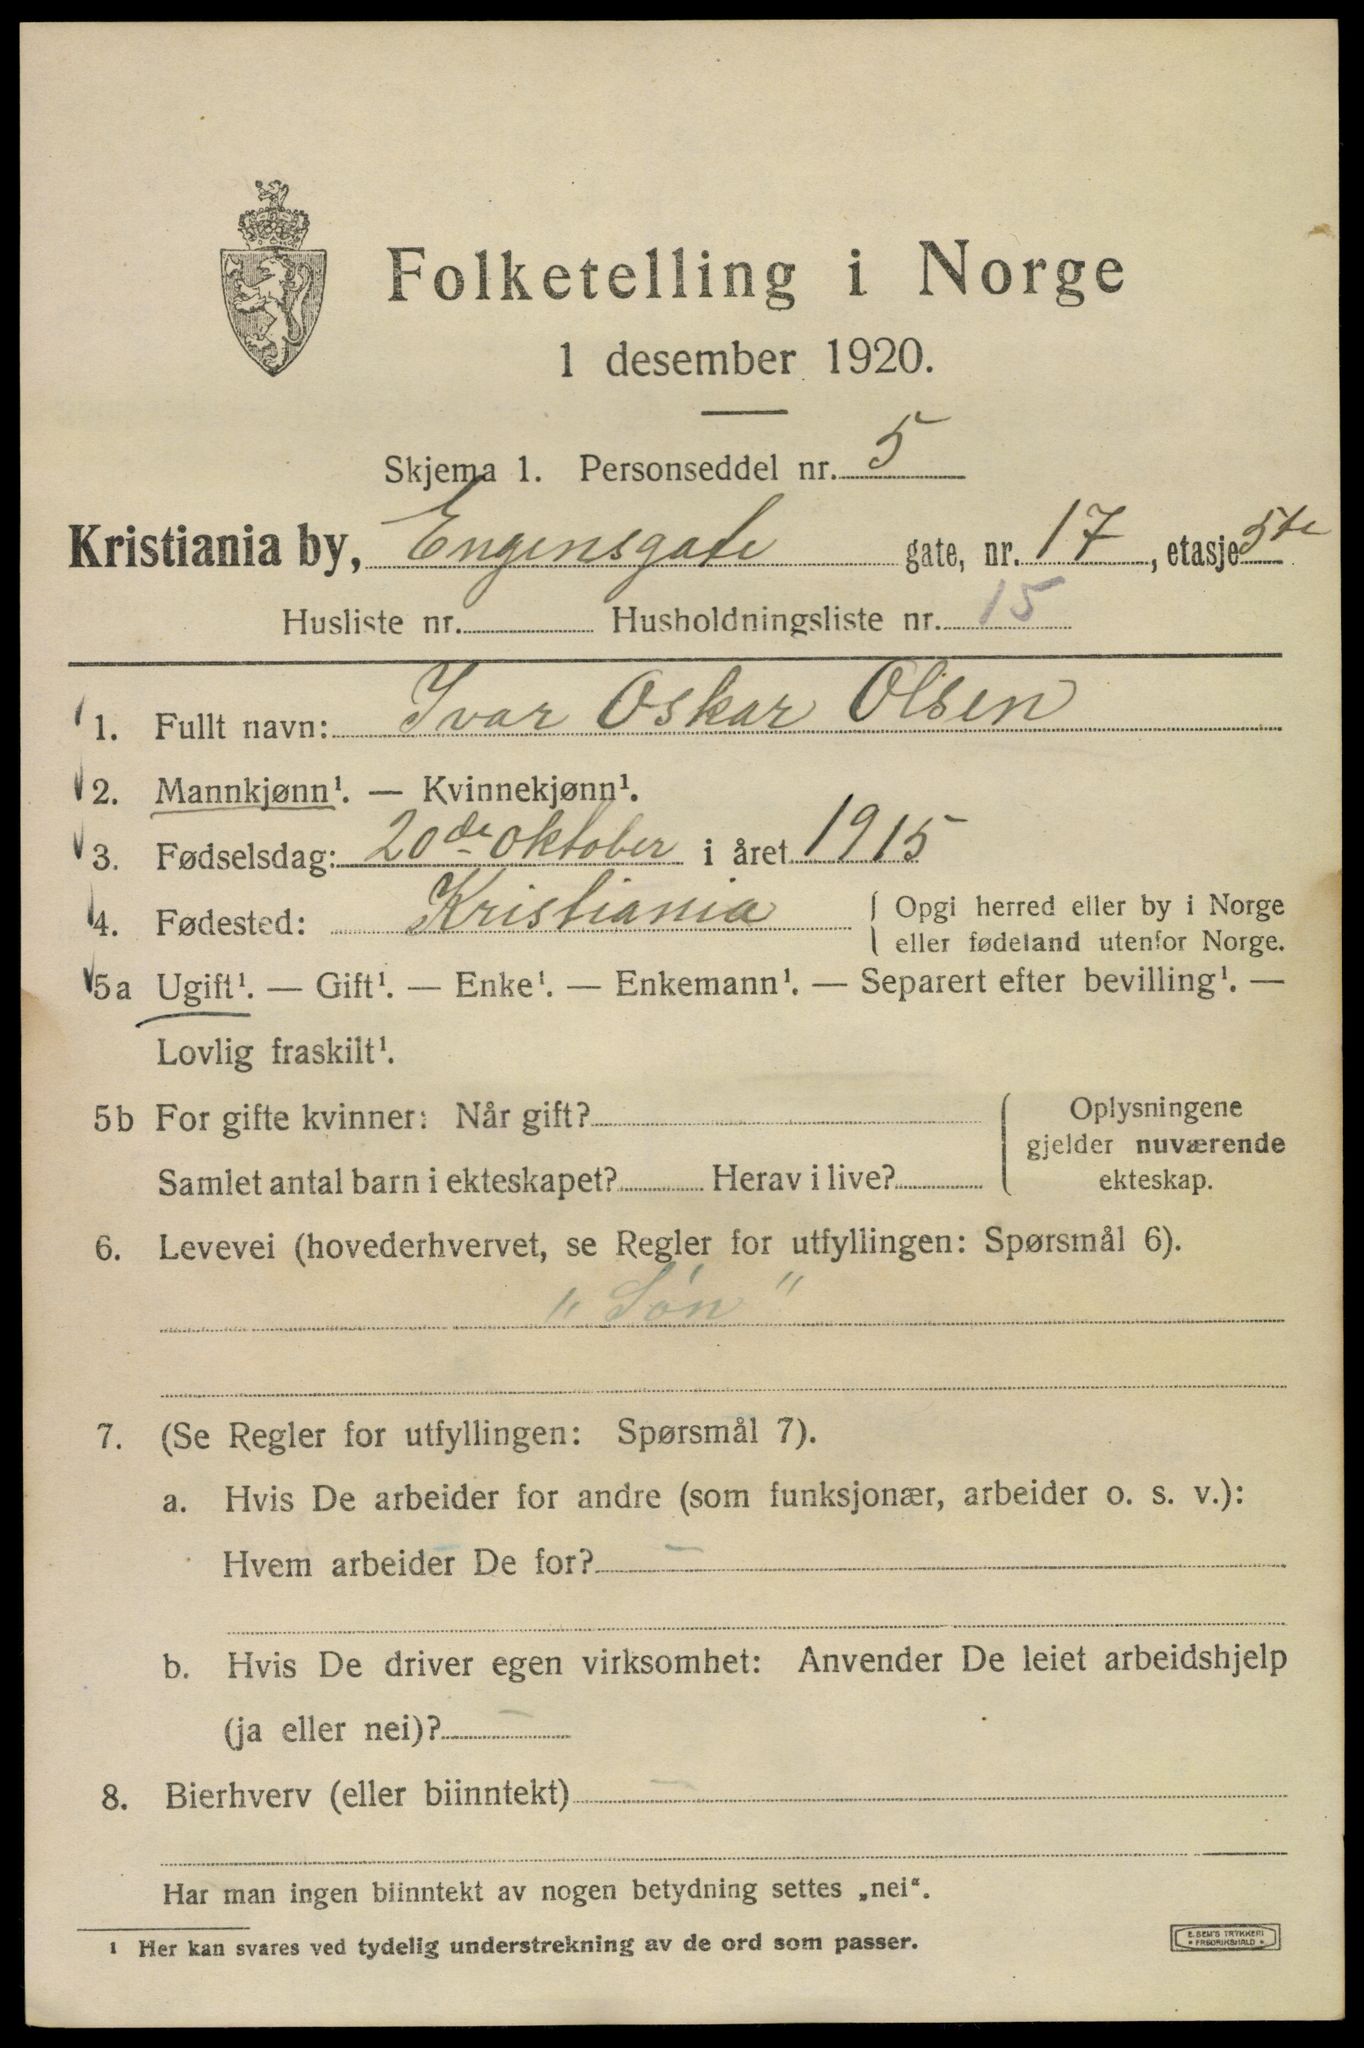 Folketelling i Norge
1 desember 1920.
Skjema 1. Personseddel nr. 5
Kristiania by, Engensgate gate, nr. 17, etasje 5te
Husliste nr. Husholdningsliste nr. 15
1. Fullt navn: Ivar Oskar Olsen
2. Mannkjønn¹. — Kvinnekjønn¹.
3. Fødselsdag: 20de oktober i året 1915
4. Fødested: Kristiania { Opgi herred eller by i Norge
eller fødeland utenfor Norge.
5a Ugift¹. — Gift¹. — Enke¹. — Enkemann¹. — Separert efter bevilling¹. —
Lovlig fraskilt¹.
5b For gifte kvinner: Når gift? { Oplysningene
gjelder nuværende
Samlet antal barn i ekteskapet? Herav i live? ekteskap.
6. Levevei (hovederhvervet, se Regler for utfyllingen: Spørsmål 6).
„Søn"
7. (Se Regler for utfyllingen: Spørsmål 7).
a. Hvis De arbeider for andre (som funksjonær, arbeider o. s. v.):
Hvem arbeider De for? —
b. Hvis De driver egen virksomhet: Anvender De leiet arbeidshjelp
(ja eller nei)? —
8. Bierhverv (eller biinntekt) —
Har man ingen biinntekt av nogen betydning settes „nei“.
¹ Her kan svares ved tydelig understrekning av de ord som passer.
E. SEM'S TRYKKERI
* FREDRIKSHALD *